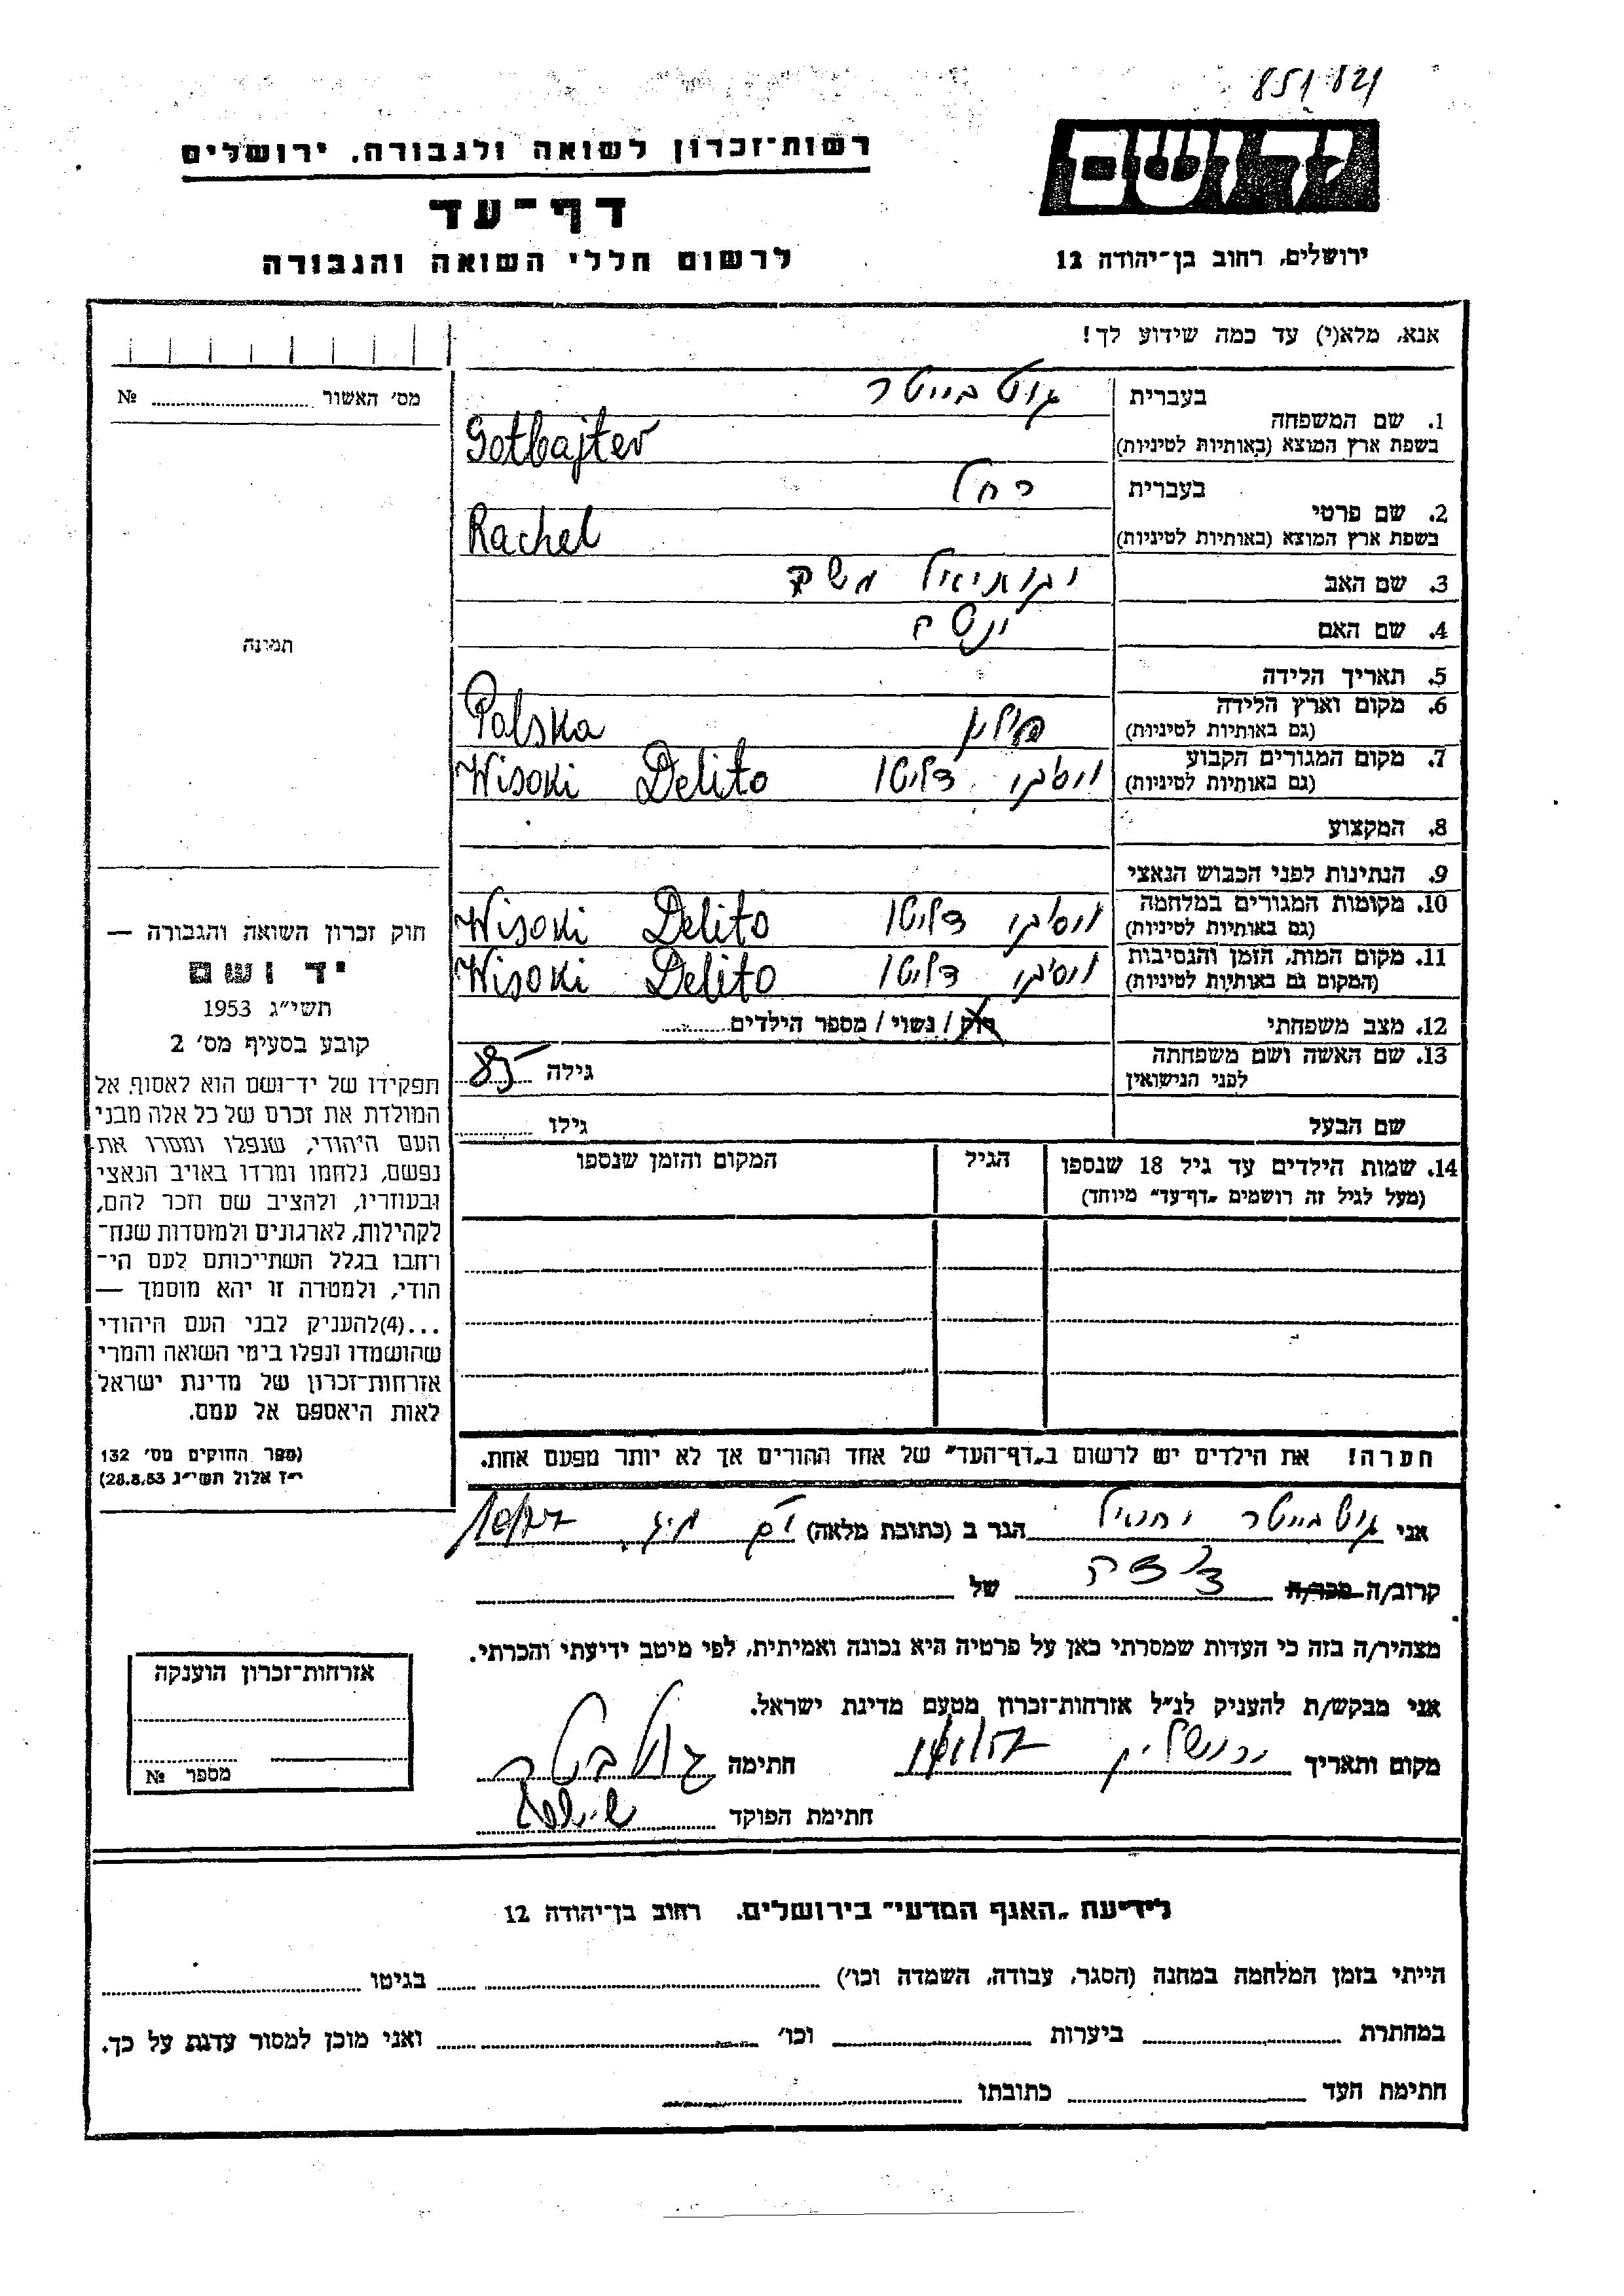 רשות־זכרון לשואה ולגבורה, ירושלים
דף־עד
לרשום חללי השואה והגבורה
ידושם
ירושלים, רחוב בן־יהודה 12
אנא, מלא(י) עד כמה שידוע לך!
מס׳ האשור № 
1. שם המשפחה בעברית גוטבייטר
בשפת ארץ המוצא (באותיות לטיניות) Gotbajter
2. שם פרטי בעברית רחל
בשפת ארץ המוצא (באותיות לטיניות) Rachel
3. שם האב יקותיאל משה
4. שם האם
5. תאריך הלידה
6. מקום וארץ הלידה (גם באותיות לטיניות) פולין Polska
7. מקום המגורים הקבוע (גם באותיות לטיניות) ויסוקי דליטו Wisoki Delito
8. המקצוע
9. הנתינות לפני הכבוש הנאצי
10. מקומות המגורים במלחמה (גם באותיות לטיניות) ויסוקי דליטו Wisoki Delito
11. מקום המות, הזמן והנסיבות (המקום גם באותיות לטיניות) ויסוקי דליטו Wisoki Delito
12. מצב משפחתי רוק / נשוי / מספר הילדים
13. שם האשה ושם משפחתה לפני הנישואין גילה 85
שם הבעל גילו
14. שמות הילדים עד גיל 18 שנספו הגיל המקום והזמן שנספו
(מעל לגיל זה רושמים „דף־עד״ מיוחד)
הערה! את הילדים יש לרשום ב„דף־העד״ של אחד ההורים אך לא יותר מפעם אחת.
תמונה
חוק זכרון השואה והגבורה —
יד ושם
תשי״ג 1953
קובע בסעיף מס׳ 2
תפקידו של יד־ושם הוא לאסוף אל
המולדת את זכרם של כל אלה מבני
העם היהודי, שנפלו ומסרו את
נפשם, נלחמו ומרדו באויב הנאצי
ובעוזריו, ולהציב שם וזכר להם,
לקהילות, לארגונים ולמוסדות שנח־
רחבו בגלל השתייכותם לעם הי־
הודי, ולמטרה זו יהא מוסמך —
...(4)להעניק לבני העם היהודי
שהושמדו ונפלו בימי השואה והמרי
אזרחות־זכרון של מדינת ישראל
לאות היאספם אל עמם.
(ספר החוקים מס׳ 132
י״ז אלול תשי״ג 28.8.53)
אני גוטבייטר הגר ב (כתובת מלאה)
קרוב/ה מכר/ה של
מצהיר/ה בזה כי העדות שמסרתי כאן על פרטיה היא נכונה ואמיתית, לפי מיטב ידיעתי והכרתי.
אני מבקש/ת להעניק לנ״ל אזרחות־זכרון מטעם מדינת ישראל.
מקום ותאריך ירושלים חתימה
חתימת הפוקד
אזרחות־זכרון הוענקה
מספר №
לידיעת „האגף המדעי״ בירושלים. רחוב בן־יהודה 12
הייתי בזמן המלחמה במחנה (הסגר, עבודה, השמדה וכו׳) בגיטו
במחתרת ביערות וכו׳ ואני מוכן למסור עדות על כך.
חתימת העד כתובתו